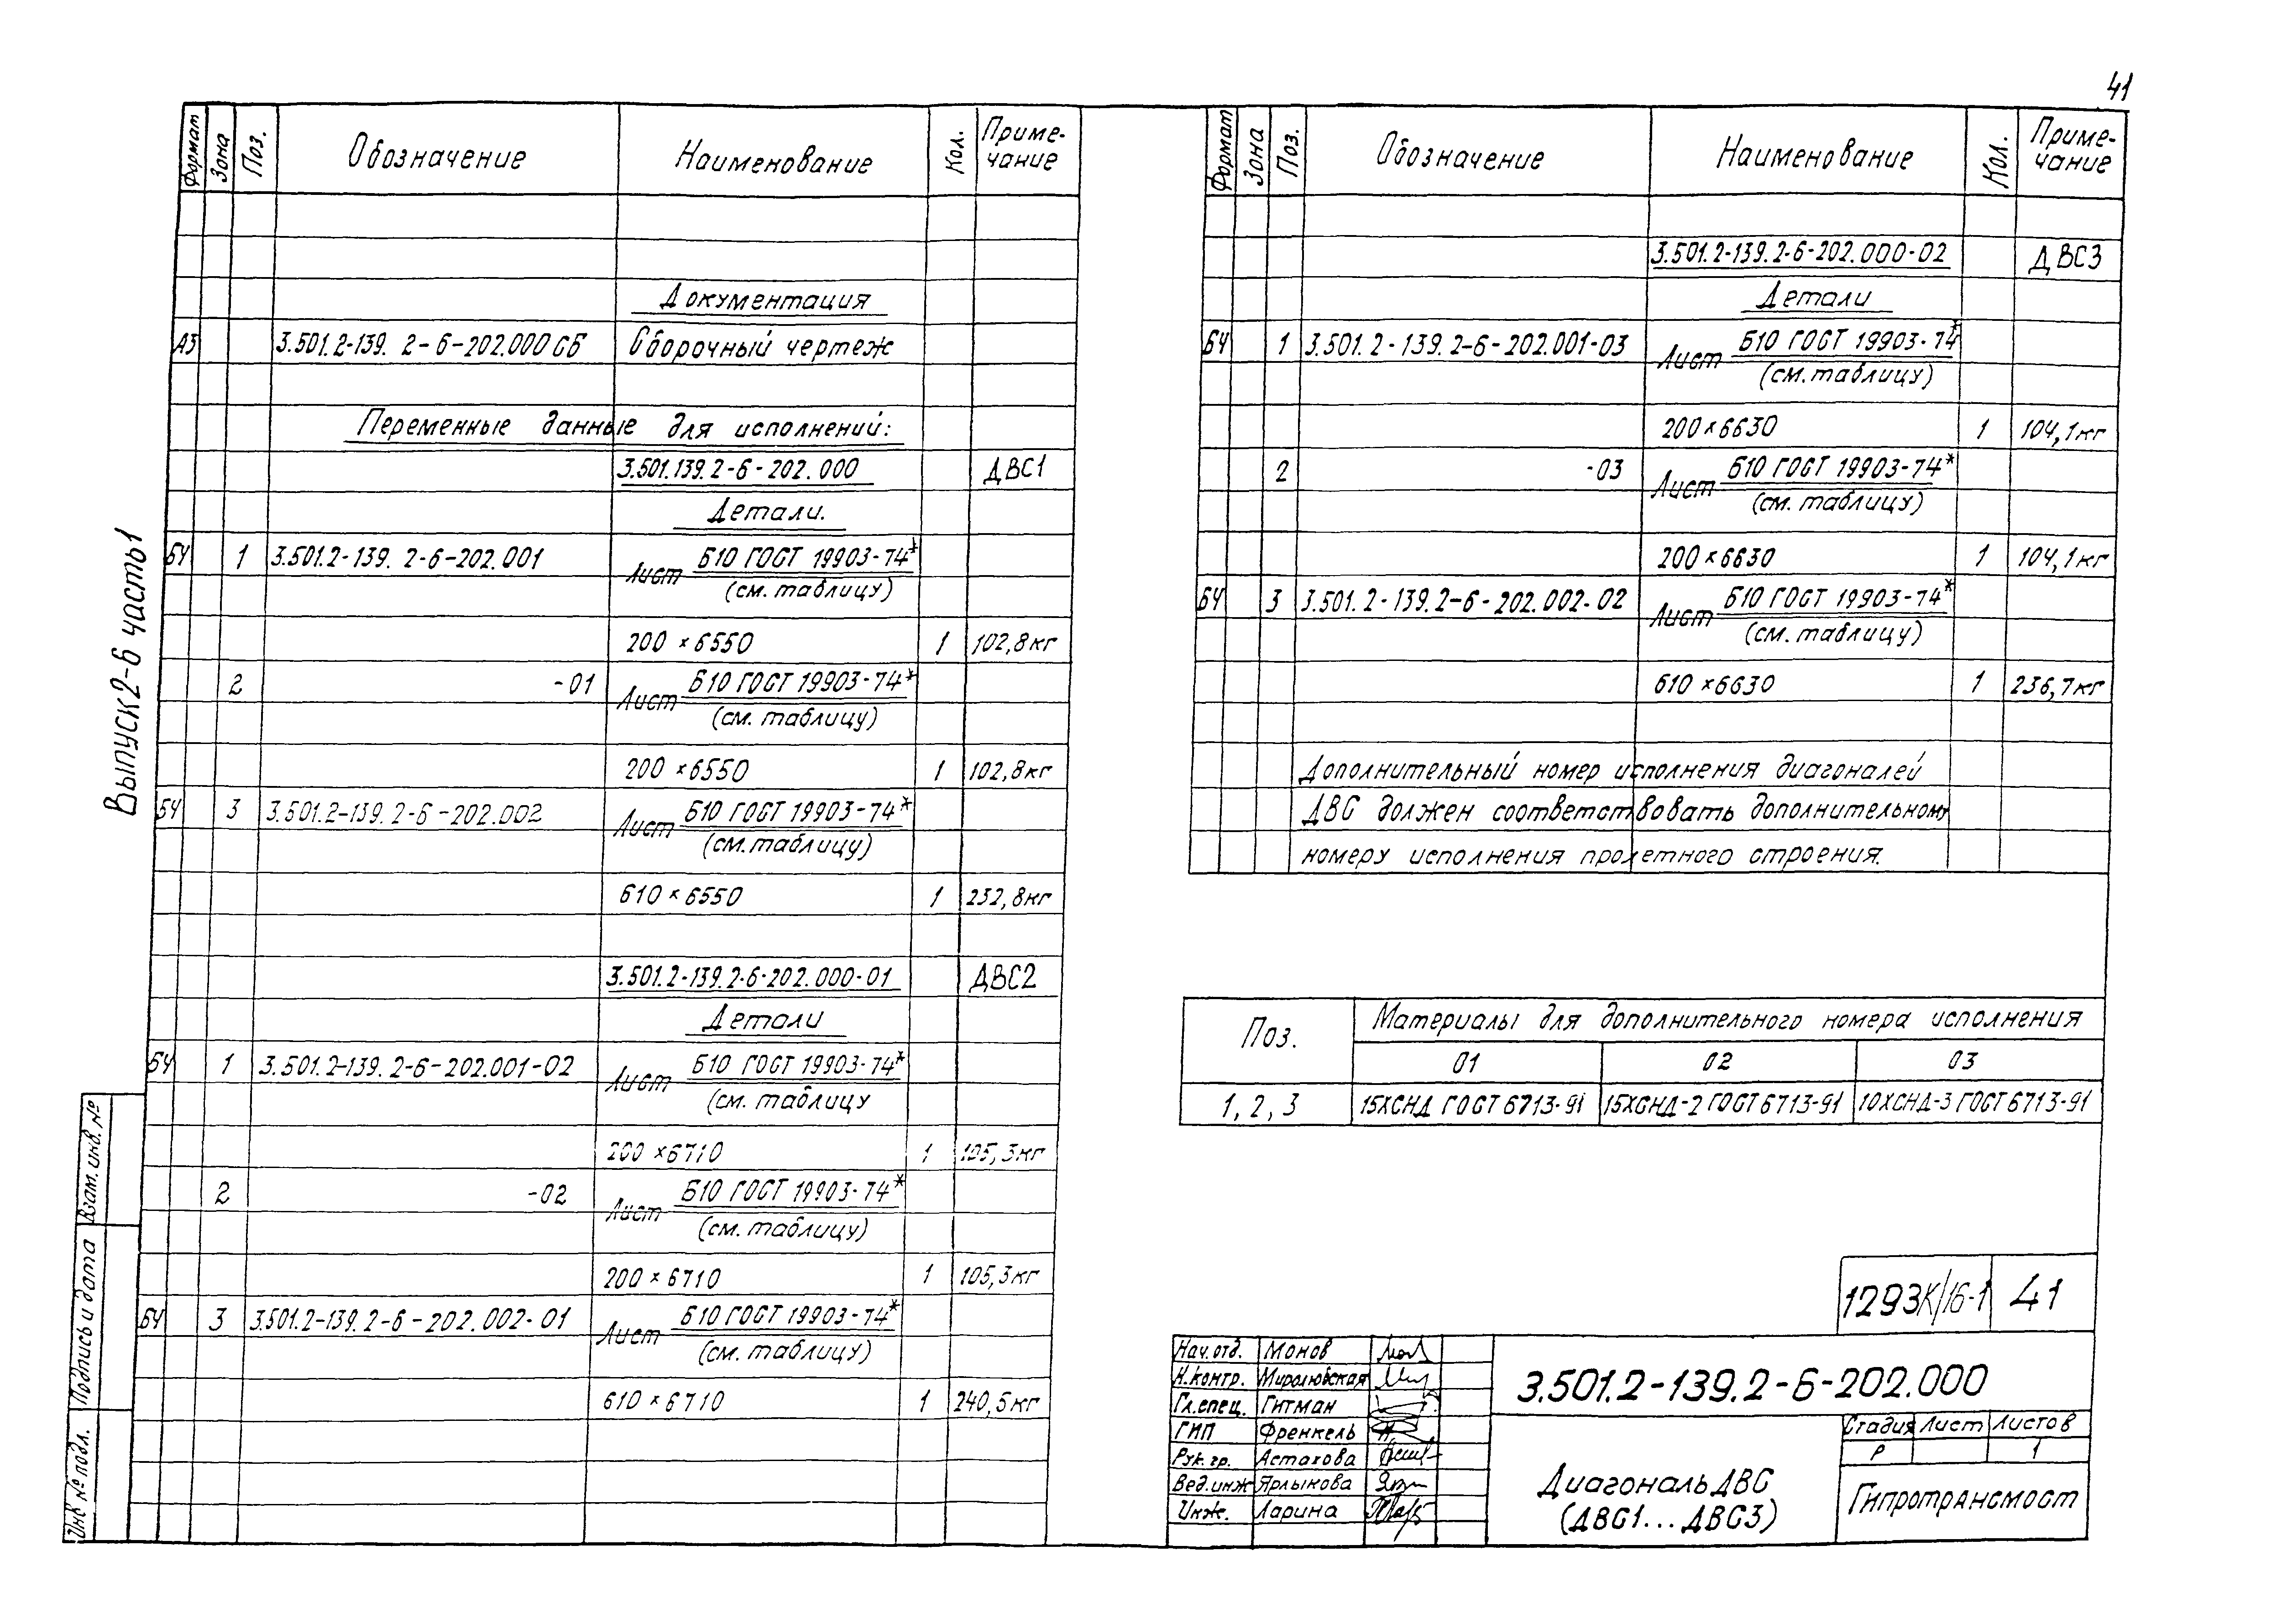 41
Выпуск 2-6 часть 1
Формат Зона Поз. Обозначение Наименование Кол. Приме-
чание
Документация
А3 3.501.2-139. 2-6-202.000 СБ Сборочный чертеж
Переменные данные для исполнений:
3.501.139.2-6-202.000 ДВС1
Детали.
БЧ 1 3.501.2-139. 2-6-202.001 Лист Б10 ГОСТ 19903-74*
(см. таблицу)
200 × 6550 1 102,8 кг
2 -01 Лист Б10 ГОСТ 19903-74*
(см. таблицу)
200 × 6550 1 102,8 кг
БЧ 3 3.501.2-139.2-6-202.002 Лист Б10 ГОСТ 19903-74*
(см. таблицу)
610 × 6550 1 232,8 кг
3.501.2-139.2-6-202.000-01 ДВС2
Детали
БЧ 1 3.501.2-139. 2-6-202.001-02 Лист Б10 ГОСТ 19903-74*
(см. таблицу
200 × 6710 1 105,3 кг
2 -02 Лист Б10 ГОСТ 19903-74*
(см. таблицу)
200 × 6710 1 105,3 кг
БЧ 3 3.501.2-139. 2-6-202.002-01 Лист Б10 ГОСТ 19903-74*
(см. таблицу)
610 × 6710 1 240,5 кг
Формат Зона Поз. Обозначение Наименование Кол. Приме-
чание
3.501.2-139.2-6-202.000-02 ДВС3
Детали
БЧ 1 3.501.2-139.2-6-202.001-03 Лист Б10 ГОСТ 19903-74*
(см. таблицу)
200 × 6630 1 104,1 кг
2 -03 Лист Б10 ГОСТ 19903-74*
(см. таблицу)
200 × 6630 1 104,1 кг
БЧ 3 3.501.2-139.2-6-202.002-02 Лист Б10 ГОСТ 19903-74*
(см. таблицу)
610 × 6630 1 236,7 кг
Дополнительный номер исполнения диагоналей
ДВС должен соответствовать дополнительному
номеру исполнения пролетного строения.
Поз. Материалы для дополнительного номера исполнения
01 02 03
1, 2, 3 15ХСНД ГОСТ 6713-91 15ХСНД-2 ГОСТ 6713-91 10ХСНД-3 ГОСТ 6713-91
1293К/16-1 41
Нач. отд. Монов
Н.контр. Миролювская
Гл.спец. Гитман
ГИП Френкель
Рук. гр. Астахова
Вед. инж Ярлыкова
Инж. Ларина
3.501.2-139.2-6-202.000
Диагональ ДВС
(ДВС1...ДВС3)
Стадия Лист Листов
Р 1
Гипротрансмост
Взам. инв. №
Подпись и дата
Инв № подл.